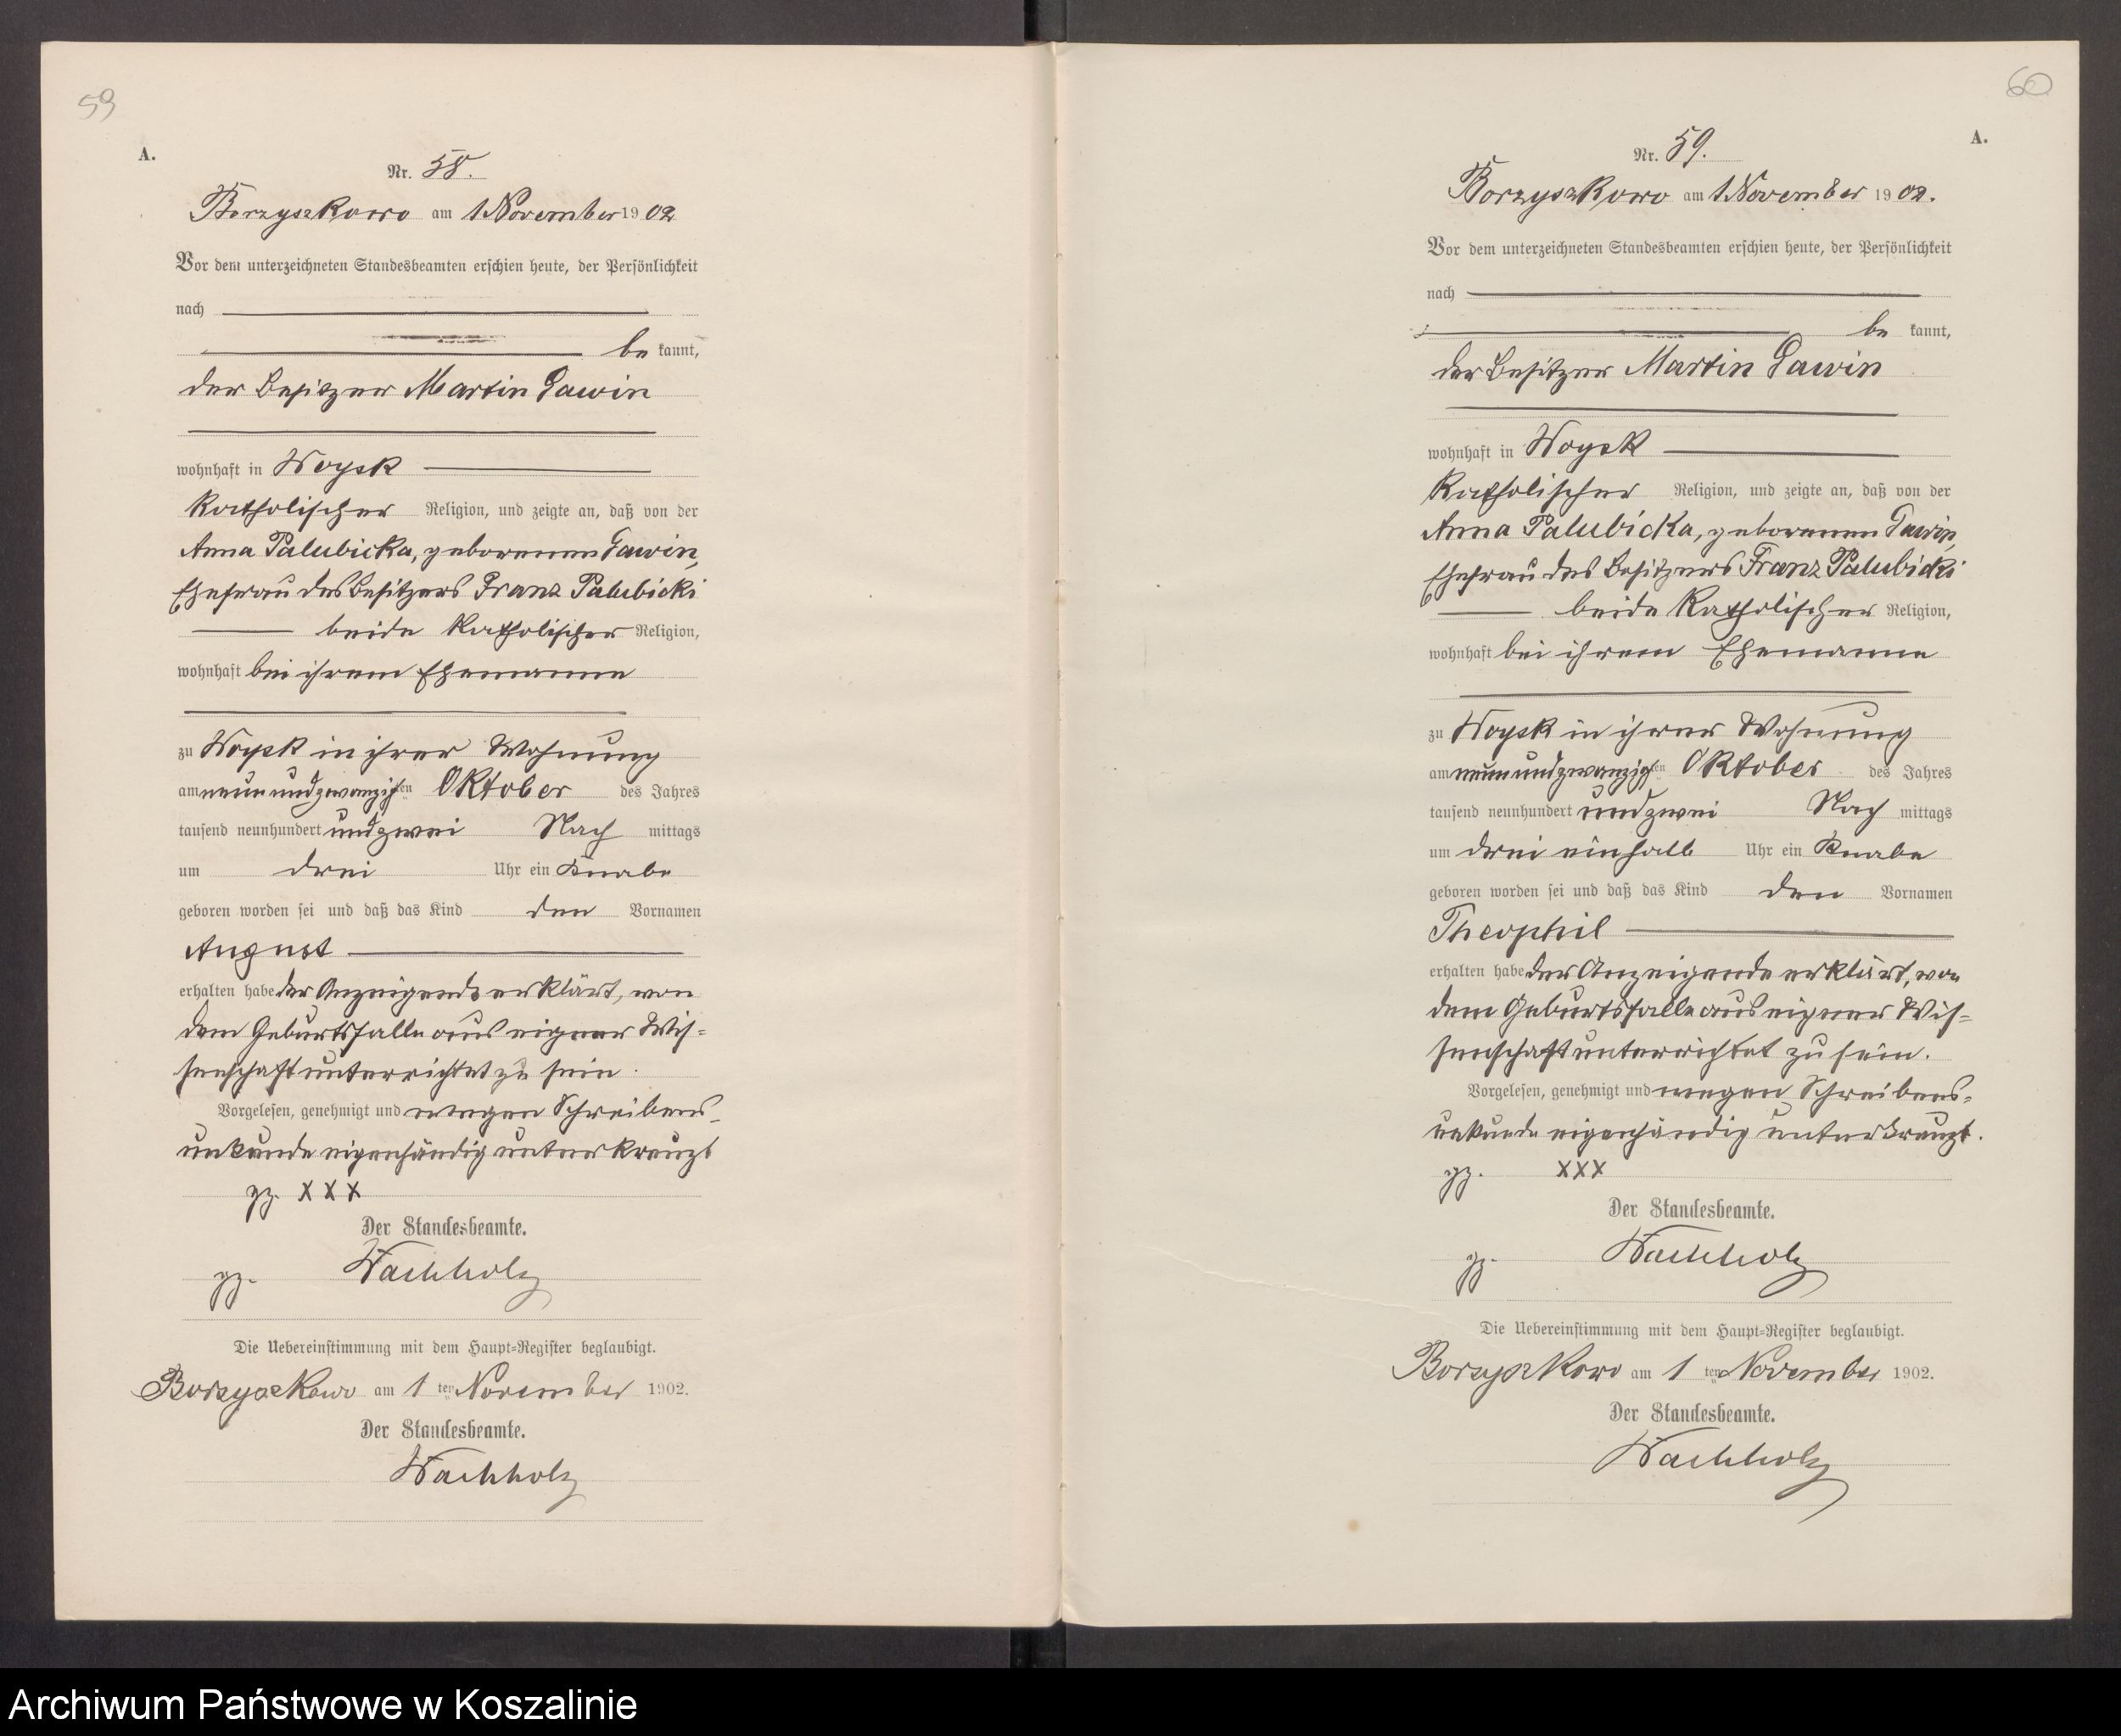 59
A.
Nr. 58.
Borzyszkowo am 1 November 1902
Vor dem unterzeichneten Standesbeamten erschien heute, der Persönlichkeit
nach
be kannt,
der Besitzer Martin Gawin
wohnhaft in Woysk
katholischer Religion, und zeigte an, daß von der
Anna Palubicka, geborenen Gawin,
Ehefrau des Besitzers Franz Palubicki
beide katholischer Religion,
wohnhaft bei ihrem Ehemanne
zu Woysk in ihrer Wohnung
am neunundzwanzigsten Oktober des Jahres
tausend neunhundert und zwei Nach mittags
um drei Uhr ein Knabe
geboren worden sei und daß das Kind den Vornamen
August
erhalten habe der Anzeigende erklärt, von
dem Geburtsfalle aus eigner Wis-
senschaft unterrichtet zu sein.
Vorgelesen, genehmigt und wegen Schreibens-
unkunde eigenhändig unterkreuzt
gz. XXX
Der Standesbeamte.
gz. Wachholz
Die Uebereinstimmung mit dem Haupt-Register beglaubigt.
Borzyszkowo am 1 ten November 1902.
Der Standesbeamte.
Wachholz
60
A.
Nr. 59.
Borzyszkowo am 1 November 1902.
Vor dem unterzeichneten Standesbeamten erschien heute, der Persönlichkeit
nach
be kannt,
der Besitzer Martin Gawin
wohnhaft in Woysk
katholischer Religion, und zeigte an, daß von der
Anna Palubicka, geborenen Gawin,
Ehefrau des Besitzers Franz Palubicki
beide katholischer Religion,
wohnhaft bei ihrem Ehemanne
zu Woysk in ihrer Wohnung
am neunundzwanzigsten Oktober des Jahres
tausend neunhundert und zwei Nach mittags
um drei einhalb Uhr ein Knabe
geboren worden sei und daß das Kind den Vornamen
Theophil
erhalten habe der Anzeigende erklärt, von
dem Geburtsfalle aus eigner Wis-
senschaft unterrichtet zu sein.
Vorgelesen, genehmigt und wegen Schreibens-
unkunde eigenhändig unterkreuzt.
gz. XXX
Der Standesbeamte.
gz. Wachholz
Die Uebereinstimmung mit dem Haupt-Register beglaubigt.
Borzyszkowo am 1 ten November 1902.
Der Standesbeamte.
Wachholz
Archiwum Państwowe w Koszalinie